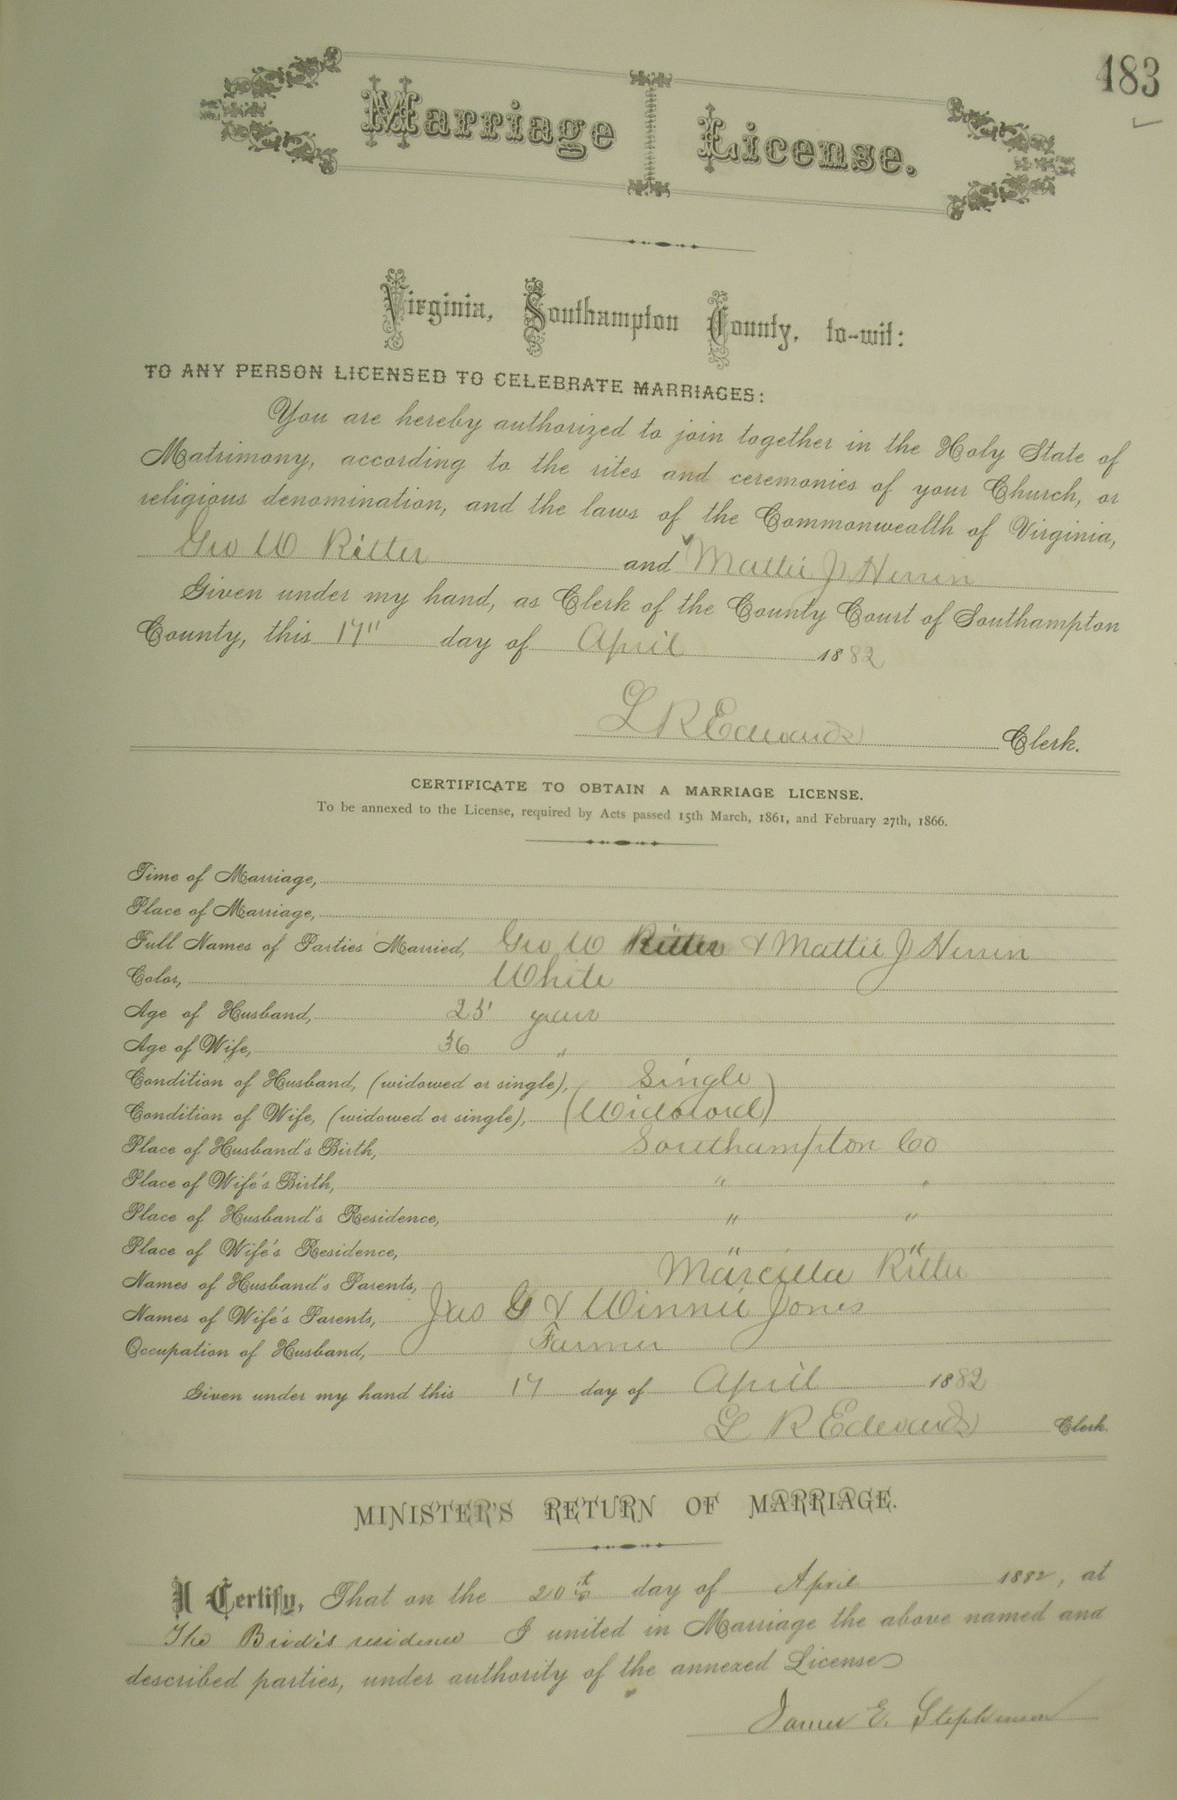 183
Marriage License.
Virginia, Southampton County, to-wit:
TO ANY PERSON LICENSED TO CELEBRATE MARRIAGES:
You are hereby authorized to join together in the Holy State of
Matrimony, according to the rites and ceremonies of your Church, or
religious denomination, and the laws of the Commonwealth of Virginia,
Geo W Ritter and Mattie J Herrin
Given under my hand, as Clerk of the County Court of Southampton
County, this 17" day of April 1882
L R Edwards Clerk.
CERTIFICATE TO OBTAIN A MARRIAGE LICENSE.
To be annexed to the License, required by Acts passed 15th March, 1861, and February 27th, 1866.
Time of Marriage,
Place of Marriage,
Full Names of Parties Married, Geo W Ritter & Mattie J Herrin
Color, White
Age of Husband, 25 years
Age of Wife, 36 "
Condition of Husband, (widowed or single), Single
Condition of Wife, (widowed or single), (Widowed)
Place of Husband's Birth, Southampton Co
Place of Wife's Birth, " "
Place of Husband's Residence, " "
Place of Wife's Residence, " "
Names of Husband's Parents, Marcilla Ritter
Names of Wife's Parents, Jas G & Winnie Jones
Occupation of Husband, Farmer
Given under my hand this 17 day of April 1882
L R Edwards Clerk.
MINISTER'S RETURN OF MARRIAGE.
I Certify, That on the 20th day of April 1882, at
The Bride's residence I united in Marriage the above named and
described parties, under authority of the annexed License
James E. Stephenson